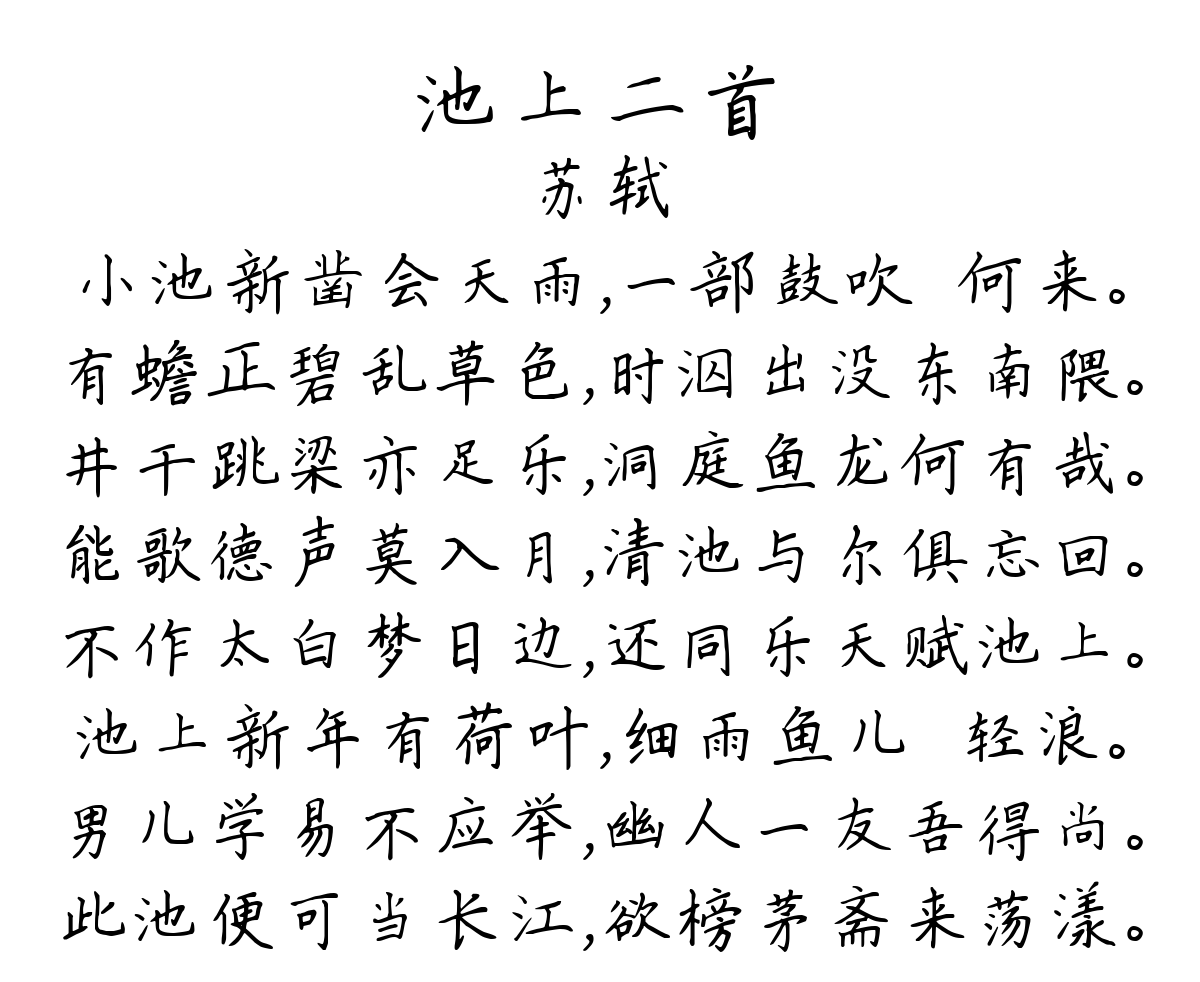 池上二首
苏轼
小池新凿会天雨,一部鼓吹 何来。
有蟾正碧乱草色,时泅出没东南隈。
井干跳梁亦足乐,洞庭鱼龙何有哉。
能歌德声莫入月,清池与尔俱忘回。
不作太白梦日边,还同乐天赋池上。
池上新年有荷叶,细雨鱼儿 轻浪。
男儿学易不应举,幽人一友吾得尚。
此池便可当长江,欲榜茅斋来荡漾。